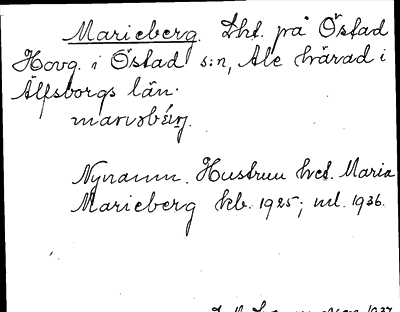 Marieberg. Lht. på Östad
Hovg. i Östad s:n, Ale härad i
Älfsborgs län.
Nynamn. Hustrun het. Maria
Marieberg kb. 1925; ml. 1936.
1937